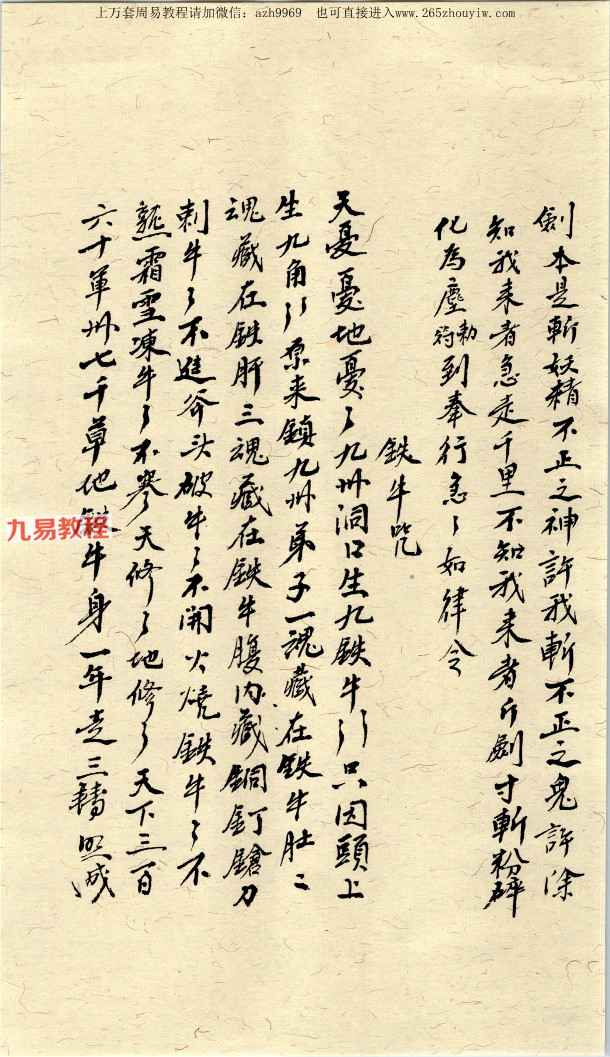 上万套周易教程请加微信：azh9969　也可直接进入www.265zhouyiw.com
劍本是斬妖精不正之神許我斬不正之鬼許除
知我来者急走千里不知我来者斤劍寸斬粉碎
化為塵勅符到奉行急了如律令
鉄牛咒
天憂憂地憂了九州洞口生九鉄牛引只因頭上
生九角引原来鎮九州弟子一魂藏在鉄牛肚二
魂藏在鉄肝三魂藏在鉄牛腹内藏銅釘鎗刀
刺牛了不進斧头破牛了不開火燒鉄牛了不
熱霜雪凍牛了不寒天修了地修了天下三百
六十軍州七千草地牛身一年走三轉
九易教程